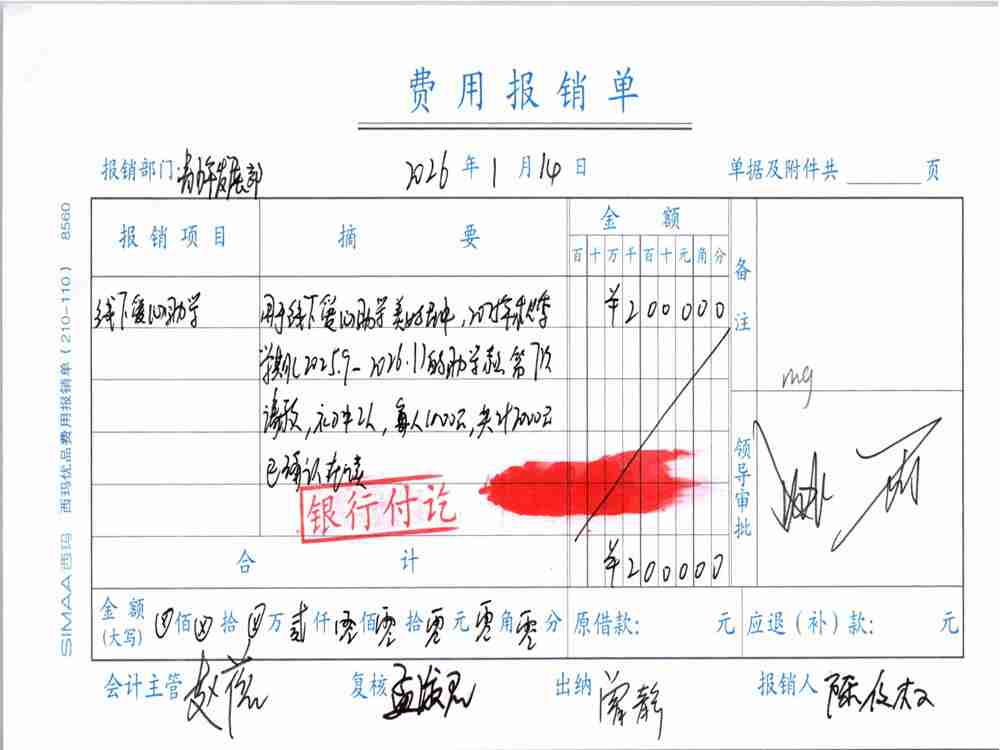 费用报销单
报销部门: 2026年1月14日 单据及附件共 页
报销项目 摘要 金额 备注
百十万千百十元角分
线下爱心助学 用于线下爱心助学美好高中,2025年秋季 ¥200000
学期(2025.9-2026.1)的助学款第7次
请款,初中2人,每人1000元,共计2000元
已确认在读
银行付讫
mg
领导审批
合计 ¥200000
金额(大写) 佰 拾 万贰仟零佰零拾零元零角零分 原借款: 元 应退(补)款: 元
会计主管 复核 出纳 曾静 报销人
SIMAA西玛 西玛优品费用报销单(210-110) 8560